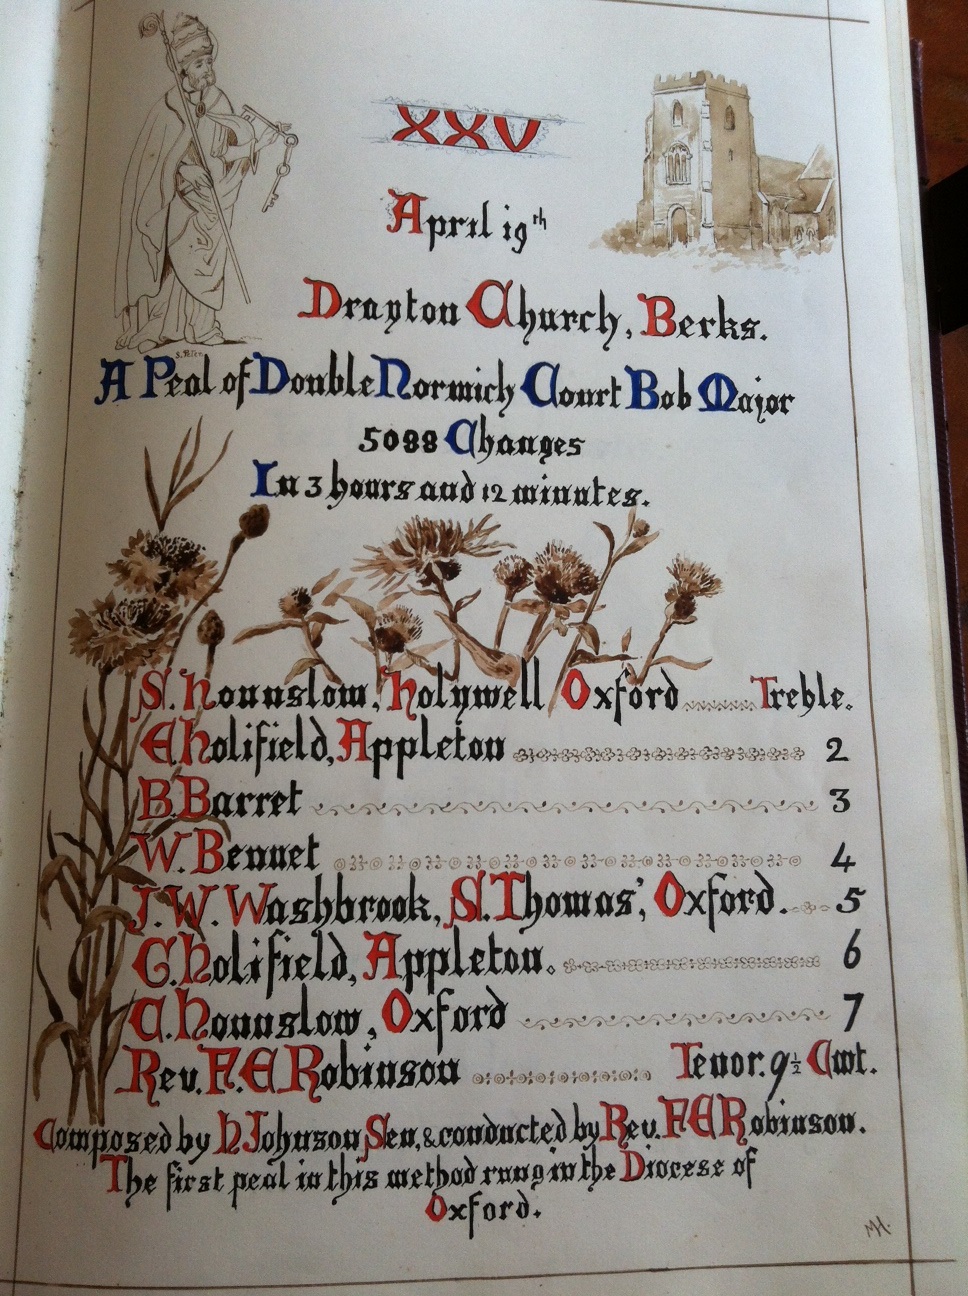 XXV
April 19th
Drayton Church, Berks.
S. Peter.
A Peal of Double Norwich Court Bob Major
5088 Changes
In 3 hours and 12 minutes.
S. Hounslow, Holywell Oxford Treble.
E Holifield, Appleton 2
B. Barret 3
W. Bennet 4
J. W. Washbrook, S. Thomas', Oxford. 5
G. Holifield, Appleton. 6
C. Hounslow, Oxford 7
Rev. F. E Robinson Tenor. 9½ Cwt.
Composed by H Johnson Sen, & conducted by Rev. F E Robinson.
The first peal in this method rung in the Diocese of
Oxford.
MH.